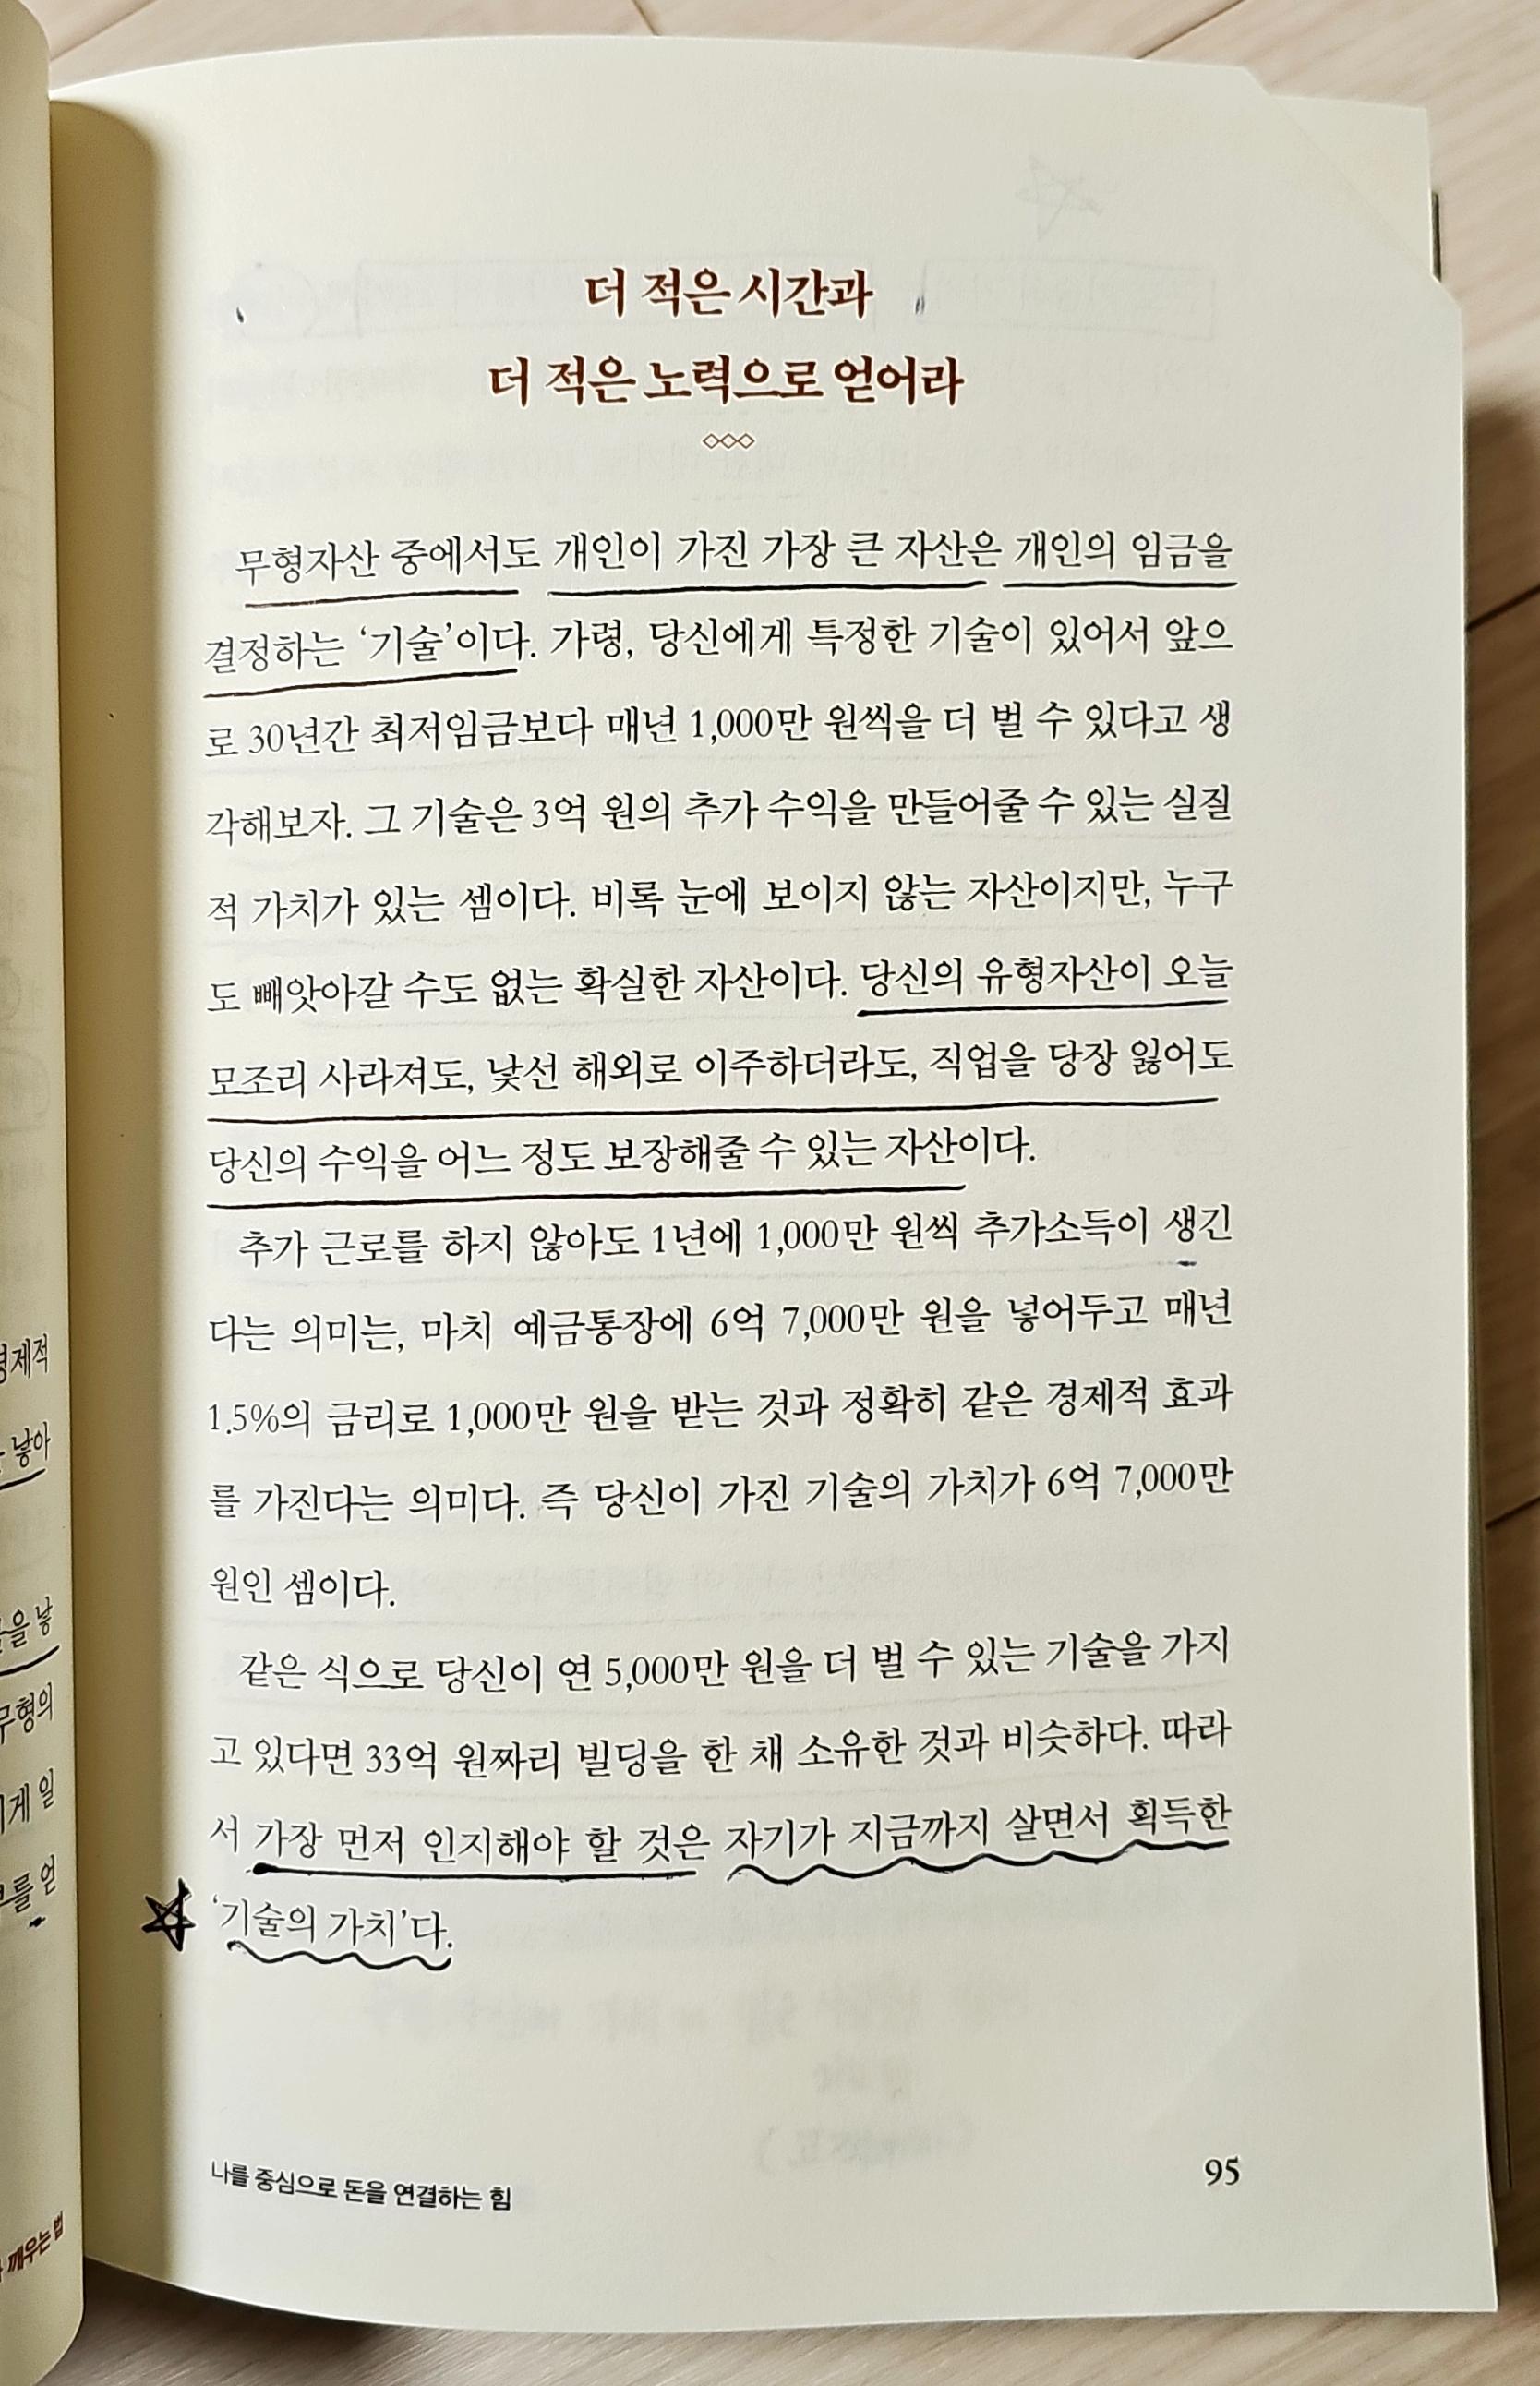 더 적은 시간과
더 적은 노력으로 얻어라
무형자산 중에서도 개인이 가진 가장 큰 자산은 개인의 임금을
결정하는 ‘기술’이다. 가령, 당신에게 특정한 기술이 있어서 앞으
로 30년간 최저임금보다 매년 1,000만 원씩을 더 벌 수 있다고 생
각해보자. 그 기술은 3억 원의 추가 수익을 만들어줄 수 있는 실질
적 가치가 있는 셈이다. 비록 눈에 보이지 않는 자산이지만, 누구
도 빼앗아갈 수도 없는 확실한 자산이다. 당신의 유형자산이 오늘
모조리 사라져도, 낯선 해외로 이주하더라도, 직업을 당장 잃어도
당신의 수익을 어느 정도 보장해줄 수 있는 자산이다.
추가 근로를 하지 않아도 1년에 1,000만 원씩 추가소득이 생긴
다는 의미는, 마치 예금통장에 6억 7,000만 원을 넣어두고 매년
1.5%의 금리로 1,000만 원을 받는 것과 정확히 같은 경제적 효과
를 가진다는 의미다. 즉 당신이 가진 기술의 가치가 6억 7,000만
원인 셈이다.
같은 식으로 당신이 연 5,000만 원을 더 벌 수 있는 기술을 가지
고 있다면 33억 원짜리 빌딩을 한 채 소유한 것과 비슷하다. 따라
서 가장 먼저 인지해야 할 것은 자기가 지금까지 살면서 획득한
‘기술의 가치’다.
나를 중심으로 돈을 연결하는 힘
95
낳아
을 낳
무형의
게 일
를 얻
깨우는 법